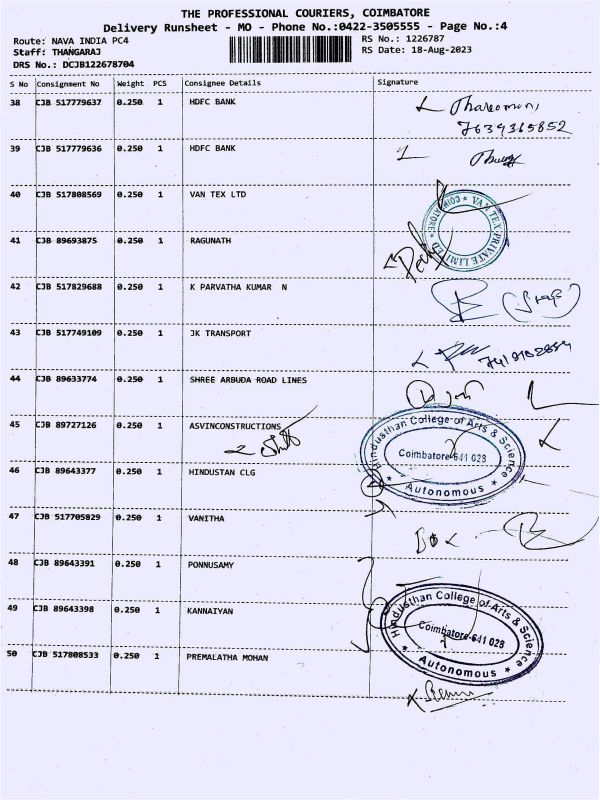 THE PROFESSIONAL COURIERS, COIMBATORE
Delivery Runsheet - MO - Phone No.:0422-3505555 - Page No.:4
Route: NAVA INDIA PC4 RS No.: 1226787
Staff: THANGARAJ RS Date: 18-Aug-2023
DRS No.: DCJB122678704
S No Consignment No Weight PCS Consignee Details Signature
38 CJB 517779637 0.250 1 HDFC BANK
7639365852
39 CJB 517779636 0.250 1 HDFC BANK
40 CJB 517808569 0.250 1 VAN TEX LTD
VAN TEX PRIVATE LIMITED * COIMBATORE *
41 CJB 89693875 0.250 1 RAGUNATH
42 CJB 517829688 0.250 1 K PARVATHA KUMAR N
43 CJB 517749109 0.250 1 JK TRANSPORT
44 CJB 89633774 0.250 1 SHREE ARBUDA ROAD LINES
45 CJB 89727126 0.250 1 ASVINCONSTRUCTIONS
Hindusthan College of Arts & Science
Coimbatore-641 028
* Autonomous *
46 CJB 89643377 0.250 1 HINDUSTAN CLG
47 CJB 517705829 0.250 1 VANITHA
48 CJB 89643391 0.250 1 PONNUSAMY
49 CJB 89643398 0.250 1 KANNAIYAN
Hindusthan College of Arts & Science
Coimbatore-641 028
* Autonomous *
50 CJB 517808533 0.250 1 PREMALATHA MOHAN